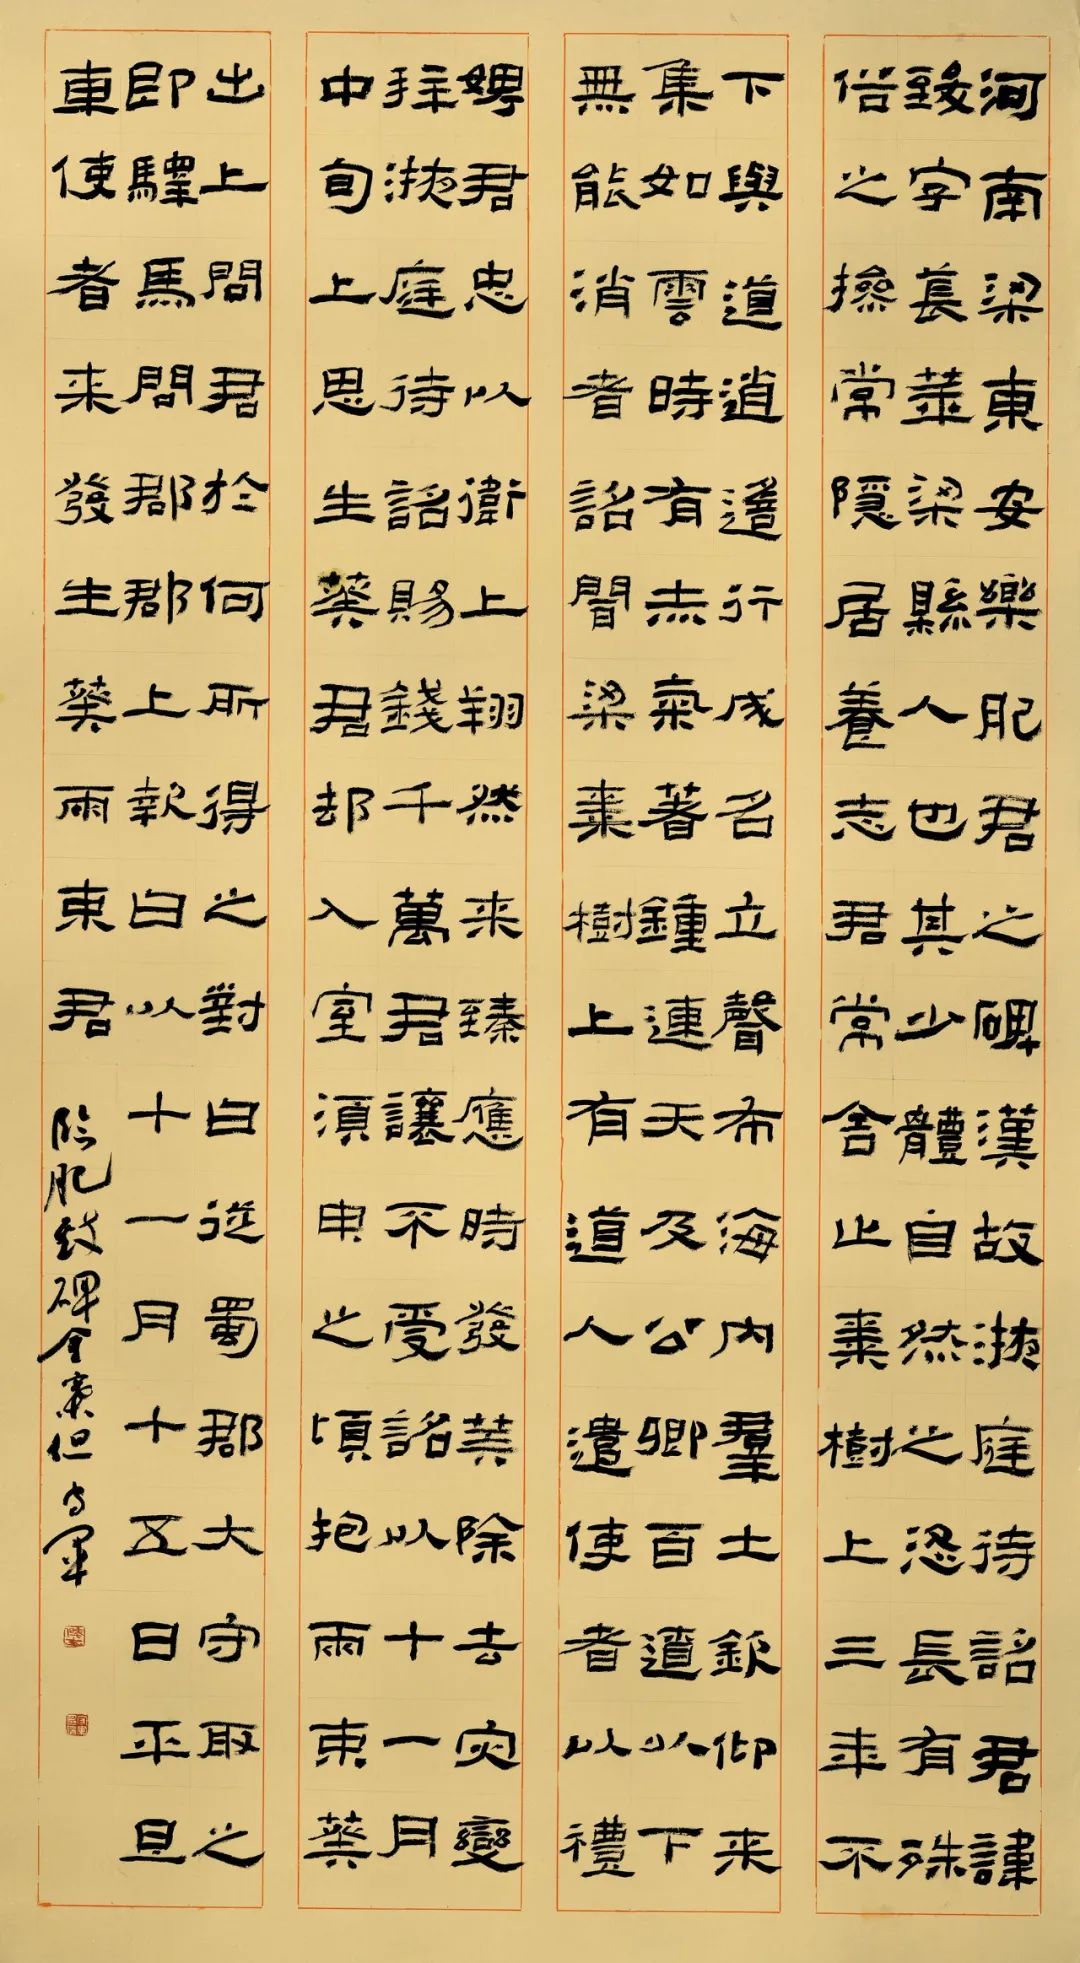 河南梁東安樂肥君之碑漢故掖庭待詔君諱
致字萇華梁縣人也其少體自然之恣長有殊
俗之操常隱居養志君常舍止棗樹上三年不
下與道逍遙行成名立聲布海內羣士欽仰来
集如雲時有赤氣著鍾連天及公卿百遼以下
無能消者詔聞梁棗樹上有道人遣使者以禮
娉君忠以衛上翔然来臻應時發筭除去灾變
拜掖庭待詔賜錢千萬君讓不受詔以十一月
中旬上思生葵君却入室須臾之頃抱兩束葵
出上問君於何所得之對曰從蜀郡大守取之
即驛馬問郡郡上報曰以十一月十五日平旦
車使者来發生葵兩束君
臨肥致碑